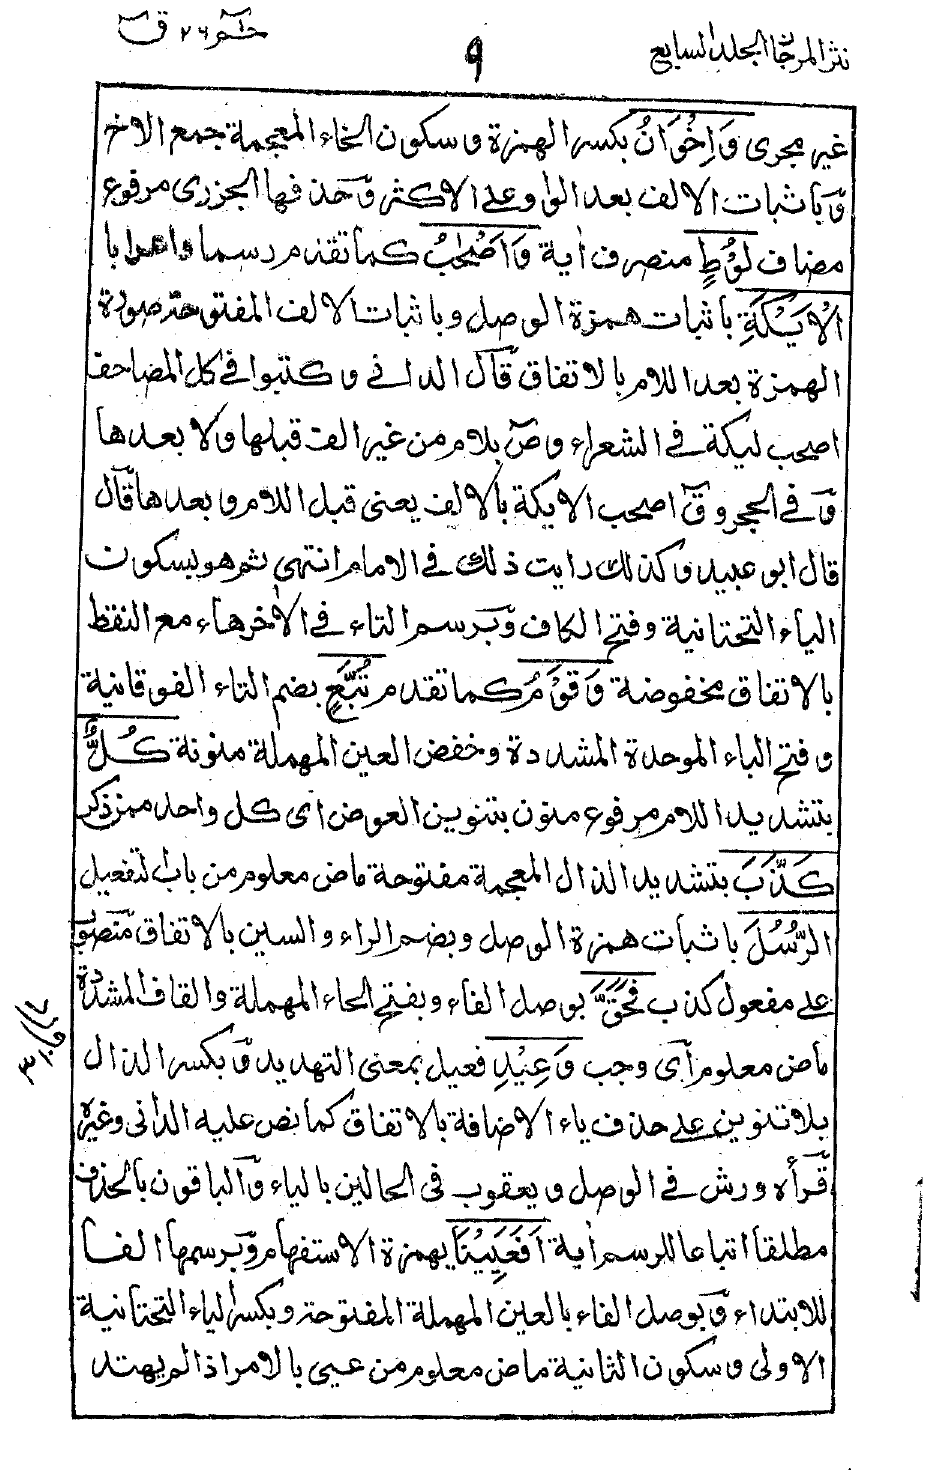 نثر المرجان الجلد السابع
۹
حٰم ۲۶ ق
غير مجرى وَاِخْوَانُ بكسر الهمزة وسكون الخاء المعجمة جمع الاخ
وباثبات الالف بعد الواو على الاكثر وحذفها الجزرى مرفوع
مضاف لُوْطٍ منصرف اٰية وَاَصْحٰبُ كما تقدم رسما واعرابا
الْاَيْكَةِ باثبات همزة الوصل وباثبات الالف المفتوحة صورة
الهمزة بعد اللام بالاتفاق قال الدانى وكتبوا فى كل المصاحف
اصحب ليكة فى الشعراء وص بلام من غير الف قبلها ولا بعدها
وفى الحجر وق اصحب الايكة بالالف يعنى قبل اللام وبعدها قال
قال ابو عبيد وكذلك رايت ذلك فى الامام انتهى ثم هو بسكون
الياء التحتانية وفتح الكاف وبرسم التاء فى الاٰخر هاء مع النقط
بالاتفاق مخفوضة وَقَوْمُ كما تقدم تُبَّعٍ بضم التاء الفوقانية
وفتح الباء الموحدة المشددة وخفض العين المهملة منونة كُلٌّ
بتشديد اللام مرفوع منون بتنوين العوض اى كل واحد ممن ذكر
كَذَّبَ بتشديد الذال المعجمة مفتوحة ماض معلوم من باب التفعيل
الرُّسُلَ باثبات همزة الوصل وبضم الراء والسين بالاتفاق منصوب
على مفعول كذب فَحَقَّ بوصل الفاء وبفتح الحاء المهملة والقاف المشددة
ماض معلوم اى وجب وَعِيْدِ فعيل بمعنى التهديد وبكسر الذال
بلا تنوين على حذف ياء الاضافة بالاتفاق كما نص عليه الدانى وغيره
قرأه ورش فى الوصل ويعقوب فى الحالين بالياء والباقون بالحذف
مطلقا اتباعا للرسم اٰية اَفَعَيِيْنَا بهمزة الاستفهام وبرسمها الفا
للابتداء وبوصل الفاء بالعين المهملة المفتوحة وبكسر الياء التحتانية
الاولى وسكون الثانية ماض معلوم من عيى بالامر اذا لم يهتد